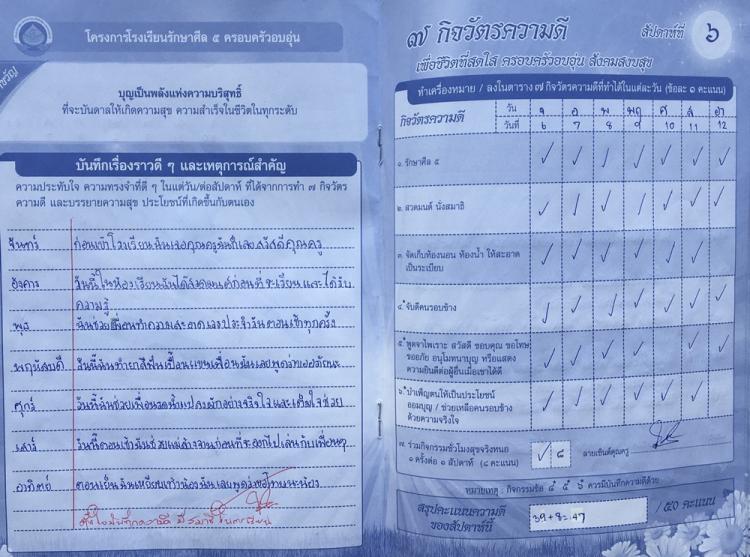 โครงการโรงเรียนรักษาศีล ๕ ครอบครัวอบอุ่น
บุญเป็นพลังแห่งความบริสุทธิ์
ที่จะบันดาลให้เกิดความสุข ความสำเร็จในชีวิตในทุกระดับ
บันทึกเรื่องราวดี ๆ และเหตุการณ์สำคัญ
ความประทับใจ ความทรงจำที่ดี ๆ ในแต่ละวัน/ต่อสัปดาห์ ที่ได้จากการทำ ๗ กิจวัตร
ความดี และบรรยายความสุข ประโยชน์ที่เกิดขึ้นกับตนเอง
จันทร์ ก่อนเข้าโรงเรียนฉันเจอคุณครูฉันก็เลยสวัสดีคุณครู
อังคาร วันนี้ในห้องเรียนฉันได้สวดมนต์ก่อนที่จะเรียนและได้รับ
ความรู้
พุธ ฉันช่วยเพื่อนทำความสะอาดเวรประจำวันตอนเช้าทุกครั้ง
พฤหัสบดี วันนี้ฉันทำยาสีฟันเปื้อนแขนเพื่อนฉันเลยพูดว่าขอโทษนะ
ศุกร์ วันนี้ฉันช่วยเพื่อนอย่างจริงใจและเต็มใจช่วย
เสาร์ วันนี้ตอนเช้าฉันช่วยแม่ล้างจานก่อนที่จะออกไปเล่นกับเพื่อนๆ
อาทิตย์ ตอนเย็นฉันเหยียบเท้าน้องฉันเลยพูดว่าขอโทษนะน้อง
๗ กิจวัตรความดี
สัปดาห์ที่ ๖
เพื่อชีวิตที่สดใส ครอบครัวอบอุ่น สังคมสงบสุข
ทำเครื่องหมาย / ลงในตาราง ๗ กิจวัตรความดีที่ทำได้ในแต่ละวัน (ข้อละ ๑ คะแนน)
กิจวัตรความดี
วัน จ อ พ พฤ ศ ส อา
วันที่ 6 7 8 9 10 11 12
๑. รักษาศีล ๕
๒. สวดมนต์ นั่งสมาธิ
๓. จัดเก็บห้องนอน ห้องน้ำ ให้สะอาด
เป็นระเบียบ
๔. จับดีคนรอบข้าง
๕. พูดจาไพเราะ สวัสดี ขอบคุณ ขอโทษ
รออภัย อนุโมทนาบุญ หรือแสดง
ความยินดีต่อผู้อื่นเมื่อเขาได้ดี
๖. บำเพ็ญตนให้เป็นประโยชน์
ออมบุญ / ช่วยเหลือคนรอบข้าง
ด้วยความจริงใจ
๗. ร่วมกิจกรรมชั่วโมงสุขจริงหนอ
๑ ครั้งต่อ ๑ สัปดาห์ (๘ คะแนน)
๘
ลายเซ็นต์คุณครู
หมายเหตุ : กิจกรรมข้อ ๔ ๕ ๖ ควรมีบันทึกความดีด้วย
สรุปคะแนนความดี
ของสัปดาห์นี้
39+8=47
/ ๕๐ คะแนน